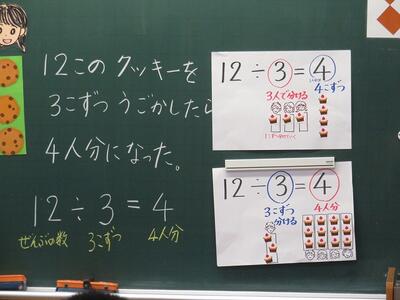 12このクッキーを
3こずつうごかしたら
4人分になった。
12÷3=4
ぜんぶの数 3こずつ 4人分
12÷3=4
3人で分ける 4こずつ
12÷3=4
3こずつ 4人分
分ける